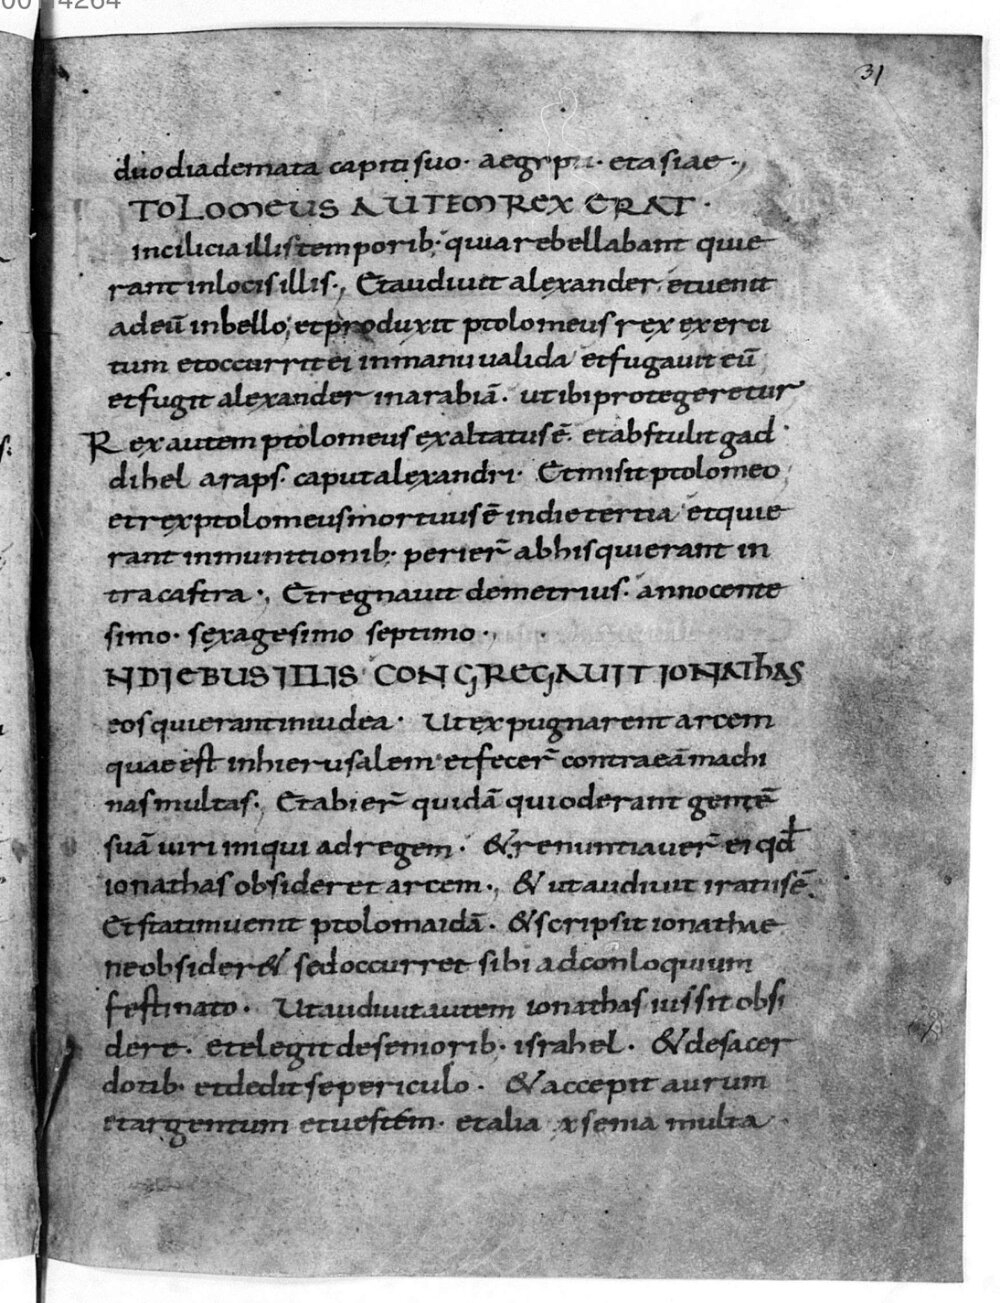 31
duo diademata capiti suo· aegypti· et asiae·,
TOLOMEUS AUTEM REX ERAT·
in cilicia illis temporib; quia rebellabant qui e
rant in locis illis·, Et audiuit alexander, et uenit
ad eū in bello; et produxit ptolomeus rex exerci
tum et occurrit ei in manu ualida et fugauit eū
et fugit alexander in arabiā· ut ibi protegeretur
Rex autem ptolomeus exaltatus ē· et abstulit gad·
dihel araps· caput alexandri· Et misit ptolomeo,
et rex ptolomeus mortuus ē in die tertia et qui e
rant in munitionib· perier̄ ab his qui erant in
tra castra·, Et regnauit demetrius· anno cente
simo· sęxagesimo septimo·,
N DIEBUS ILLIS CONGREGAUIT IONAThAS
eos qui erant in iudea· Ut expugnarent arcem
quae est in hierusalem et fecer̄ contra eā machi
nas multas·, Et abier̄ quidā qui oderant gentē
suā uiri iniqui ad regem· & renuntiauer̄ ei qđ
ionathas obsideret arcem·, & ut audiuit iratus ē·
Et statim uenit ptolomaidā· & scripsit ionathae
ne obsider& sed occurret sibi ad conloquium
festinato· Ut audiuit autem ionathas iussit obsi
dere· et elegit de seniorib· israhel· & de sacer
dotib· et dedit se periculo· & accepit aurum
et argentum et uestem· et alia xsenia multa·